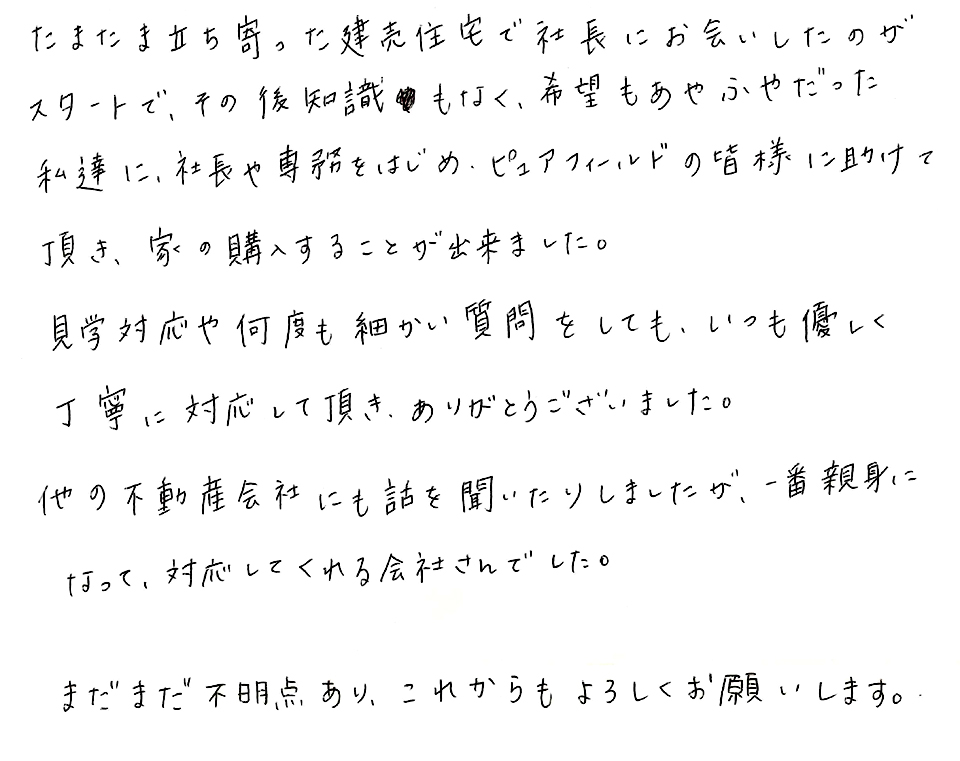 たまたま立ち寄った建売住宅で社長にお会いしたのが
スタートで、その後知識もなく、希望もあやふやだった
私達に、社長や専務をはじめ、ピュアフィールドの皆様に助けて
頂き、家の購入することが出来ました。
見学対応や何度も細かい質問をしても、いつも優しく
丁寧に対応して頂き、ありがとうございました。
他の不動産会社にも話を聞いたりしましたが、一番親身に
なって、対応してくれる会社さんでした。
まだまだ不明点あり、これからもよろしくお願いします。